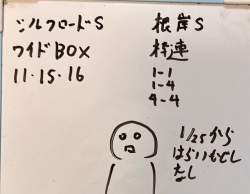 シルクロードS
ワイドBOX
11・15・16
根岸S
枠連
1-1
1-4
4-4
1/25から
はらいもどし
なし